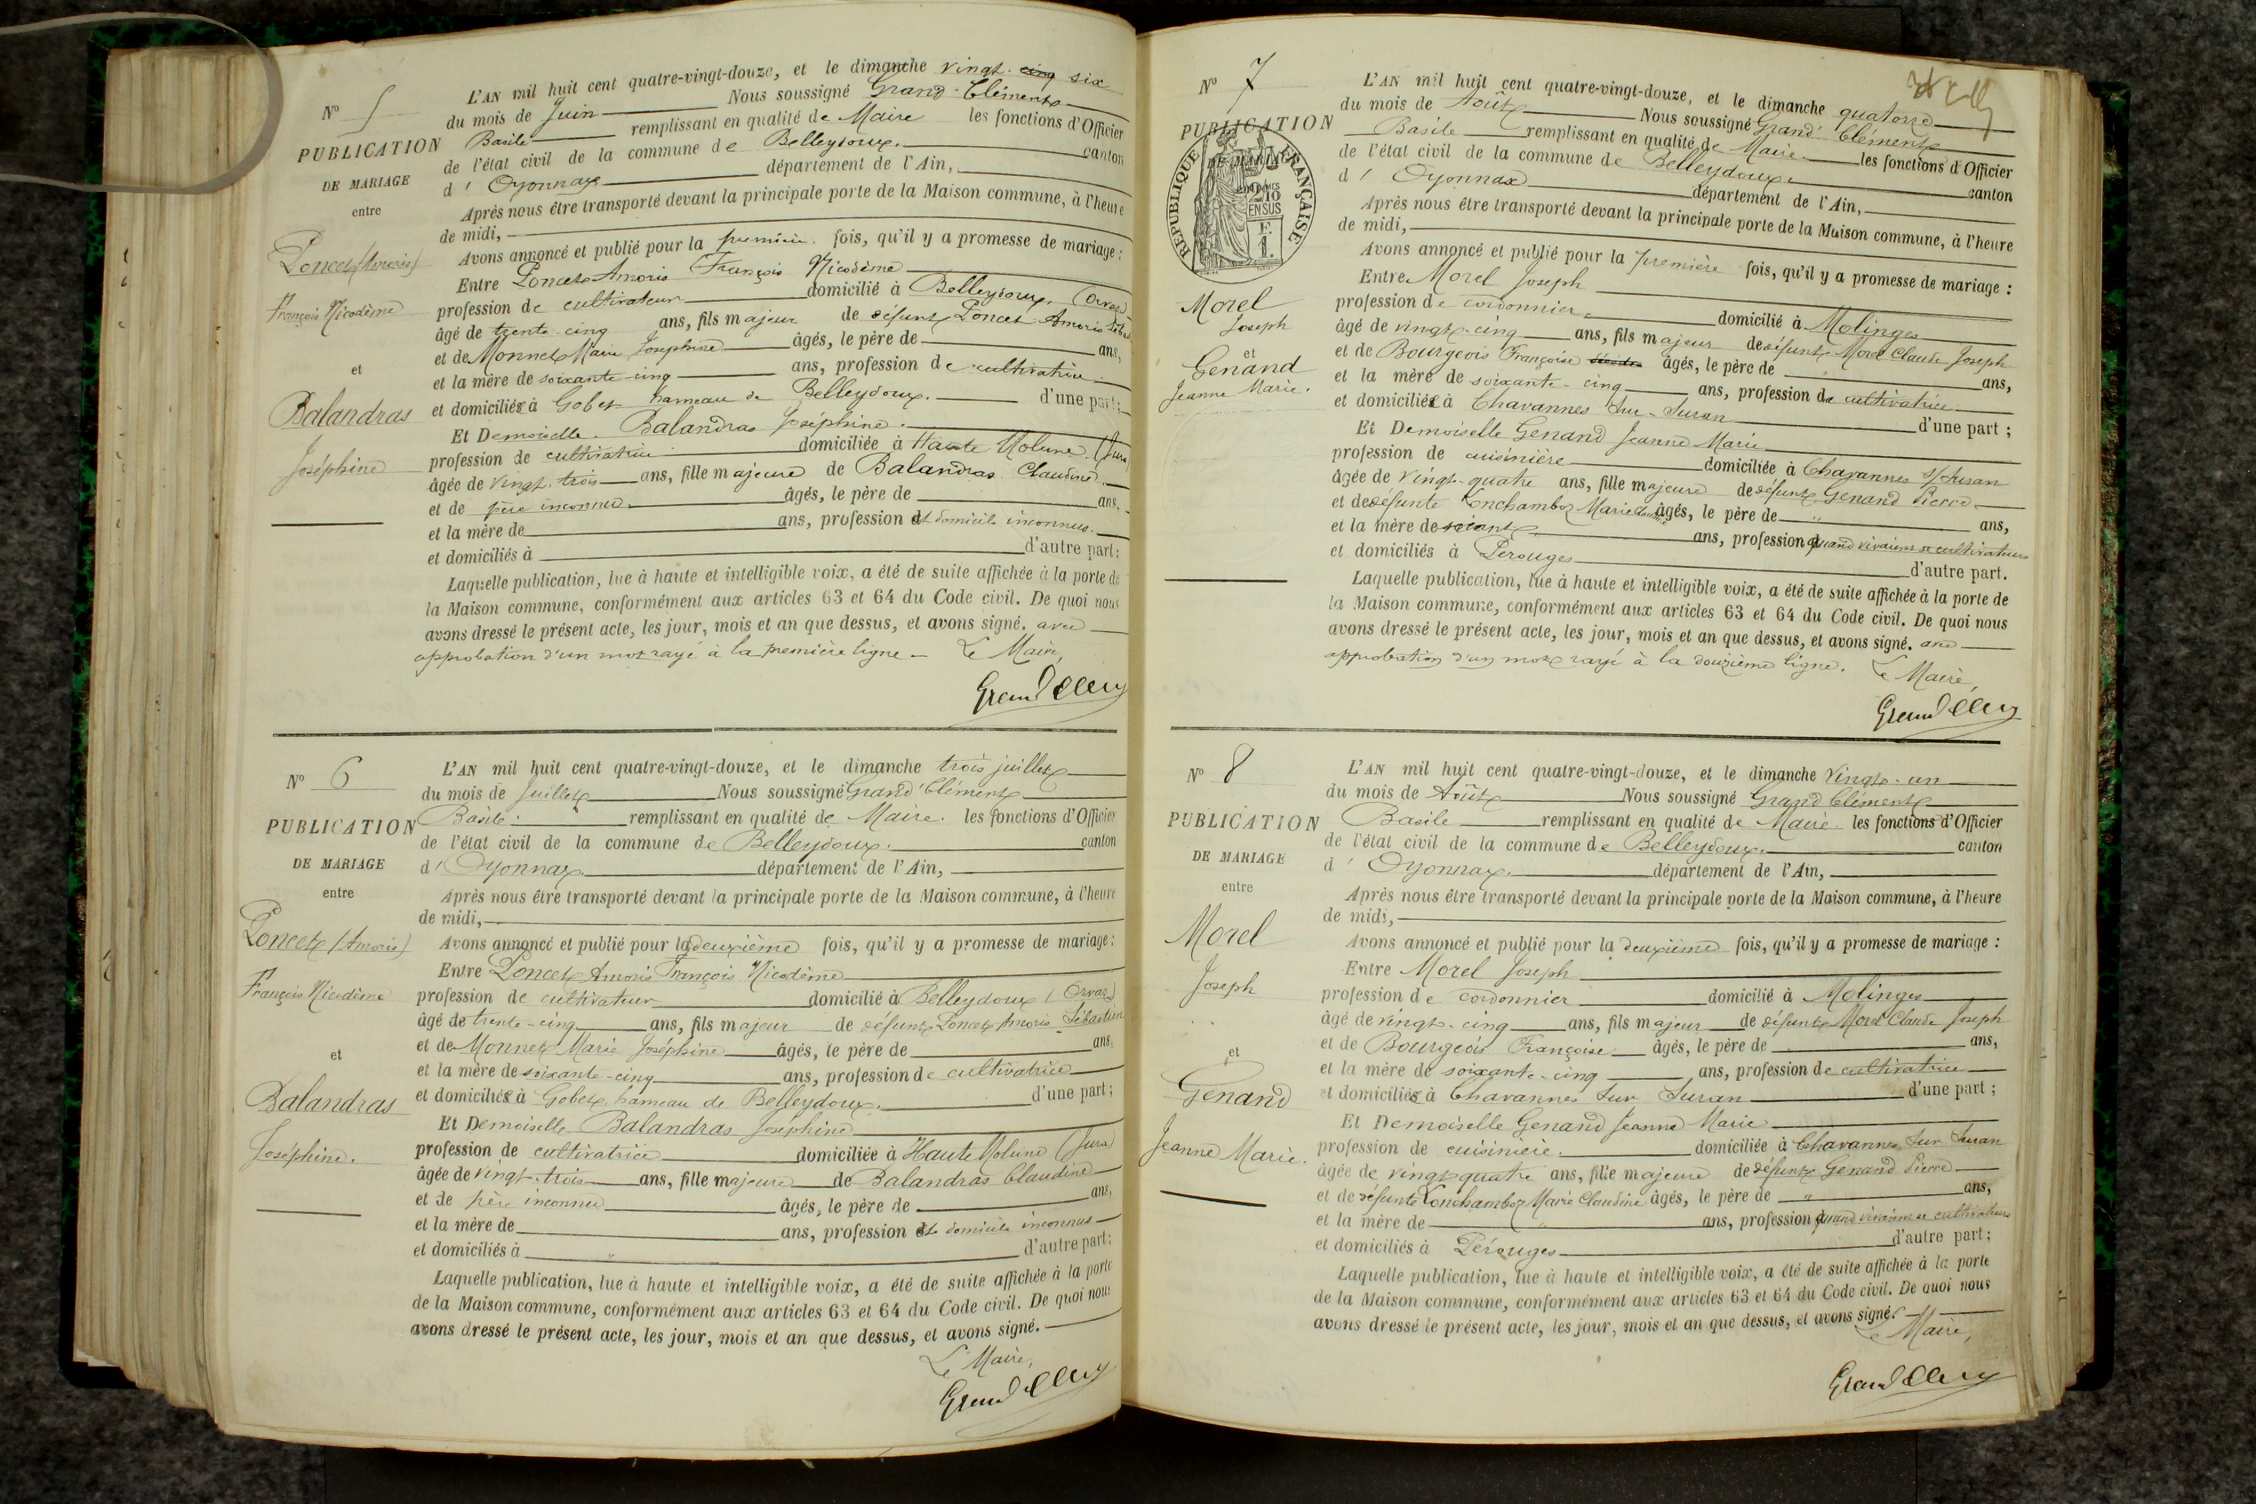 Nº 5
PUBLICATION
DE MARIAGE
entre
Poncet (Amoris)
François Nicodème
et
Balandras
Joséphine
L'AN mil huit cent quatre-vingt-douze, et le dimanche vingt-cinq six
du mois de Juin Nous soussigné Grand-Clément
Basile remplissant en qualité de Maire les fonctions d'Officier
de l'état civil de la commune de Belleydoux. canton
d'Oyonnax département de l'Ain,
Après nous être transporté devant la principale porte de la Maison commune, à l'heure
de midi,
Avons annoncé et publié pour la première fois, qu'il y a promesse de mariage :
Entre Poncet Amoris François Nicodème
profession de cultivateur domicilié à Belleydoux (Orvaz)
âgé de trente-cinq ans, fils majeur de défunt Poncet Amoris
et de Monnet Marie Joséphine âgés, le père de ans,
et la mère de soixante-cinq ans, profession de cultivatrice
et domiciliés à Gobet hameau de Belleydoux. d'une part;
Et Demoiselle Balandras Joséphine.
profession de cultivatrice domiciliée à Haute Molune (Jura)
âgée de vingt-trois ans, fille majeure de Balandras Claudine
et de père inconnu âgés, le père de ans,
et la mère de ans, profession et domicile inconnus.
et domiciliés à d'autre part:
Laquelle publication, lue à haute et intelligible voix, a été de suite affichée à la porte de
la Maison commune, conformément aux articles 63 et 64 du Code civil. De quoi nous
avons dressé le présent acte, les jour, mois et an que dessus, et avons signé. avec
approbation d'un mot rayé à la première ligne. Le Maire,
Grand Clém
Nº 6
PUBLICATION
DE MARIAGE
entre
Poncet (Amoris)
François Nicodème
et
Balandras
Joséphine.
L'AN mil huit cent quatre-vingt-douze, et le dimanche trois juillet
du mois de Juillet Nous soussigné Grand Clément
Basile remplissant en qualité de Maire. les fonctions d'Officier
de l'état civil de la commune de Belleydoux. canton
d'Oyonnax département de l'Ain,
Après nous être transporté devant la principale porte de la Maison commune, à l'heure
de midi,
Avons annoncé et publié pour la deuxième fois, qu'il y a promesse de mariage:
Entre Poncet Amoris François Nicodème
profession de cultivateur domicilié à Belleydoux (Orvaz)
âgé de trente-cinq ans, fils majeur de défunt Poncet Amoris Sébastien
et de Monnet Marie Joséphine âgés, le père de ans,
et la mère de soixante-cinq ans, profession de cultivatrice
et domiciliés à Gobet hameau de Belleydoux. d'une part;
Et Demoiselle Balandras Joséphine
profession de cultivatrice domiciliée à Haute Molune (Jura)
âgée de vingt-trois ans, fille majeure de Balandras Claudine
et de père inconnu âgés, le père de ans,
et la mère de ans, profession et domicile inconnus
et domiciliés à " d'autre part:
Laquelle publication, lue à haute et intelligible voix, a été de suite affichée à la porte
de la Maison commune, conformément aux articles 63 et 64 du Code civil. De quoi nous
avons dressé le présent acte, les jour, mois et an que dessus, et avons signé.
Le Maire,
Grand Clém
Nº 7
PUBLICATION
DE MARIAGE
RÉPUBLIQUE FRANÇAISE
2/10 EN SUS
F. 1.
Morel
Joseph
et
Genand
Jeanne Marie.
L'AN mil huit cent quatre-vingt-douze, et le dimanche quatorze
du mois de Août Nous soussigné Grand Clément
Basile remplissant en qualité de Maire les fonctions d'Officier
de l'état civil de la commune de Belleydoux canton
d'Oyonnax département de l'Ain,
Après nous être transporté devant la principale porte de la Maison commune, à l'heure
de midi,
Avons annoncé et publié pour la première fois, qu'il y a promesse de mariage :
Entre Morel Joseph
profession de cordonnier domicilié à Molinges
âgé de vingt-cinq ans, fils majeur de défunt Morel Claude Joseph
et de Bourgeois Françoise âgés, le père de " ans,
et la mère de soixante-cinq ans, profession de cultivatrice
et domiciliés à Chavannes Sur-Suran d'une part ;
Et Demoiselle Genand Jeanne Marie
profession de cuisinière domiciliée à Chavannes s/Suran
âgée de vingt-quatre ans, fille majeure de défunt Genand Pierre
et de défunte Conchamboz Marie Claudine âgés, le père de " ans,
et la mère de ans, profession quand vivaient de cultivateurs
et domiciliés à Pérouges d'autre part.
Laquelle publication, lue à haute et intelligible voix, a été de suite affichée à la porte de
la Maison commune, conformément aux articles 63 et 64 du Code civil. De quoi nous
avons dressé le présent acte, les jour, mois et an que dessus, et avons signé. avec
approbation d'un mot rayé à la douzième ligne. Le Maire,
Grand Clém
Nº 8
PUBLICATION
DE MARIAGE
entre
Morel
Joseph
et
Genand
Jeanne Marie.
L'AN mil huit cent quatre-vingt-douze, et le dimanche vingt-un
du mois de Août Nous soussigné Grand Clément
Basile remplissant en qualité de Maire. les fonctions d'Officier
de l'état civil de la commune de Belleydoux. canton
d'Oyonnax. département de l'Ain,
Après nous être transporté devant la principale porte de la Maison commune, à l'heure
de midi,
Avons annoncé et publié pour la deuxième fois, qu'il y a promesse de mariage :
Entre Morel Joseph
profession de cordonnier domicilié à Molinges
âgé de vingt-cinq ans, fils majeur de défunt Morel Claude Joseph
et de Bourgeois Françoise âgés, le père de ans,
et la mère de soixante-cinq ans, profession de cultivatrice
et domiciliés à Chavannes Sur Suran d'une part ;
Et Demoiselle Genand Jeanne Marie
profession de cuisinière. domiciliée à Chavannes Sur Suran
âgée de vingt quatre ans, fille majeure de défunt Genand Pierre
et de défunte Conchamboz Marie Claudine âgés, le père de " ans,
et la mère de " ans, profession quand vivaient de cultivateurs
et domiciliés à Pérouges d'autre part;
Laquelle publication, lue à haute et intelligible voix, a été de suite affichée à la porte
de la Maison commune, conformément aux articles 63 et 64 du Code civil. De quoi nous
avons dressé le présent acte, les jour, mois et an que dessus, et avons signé.
Le Maire,
Grand Clém